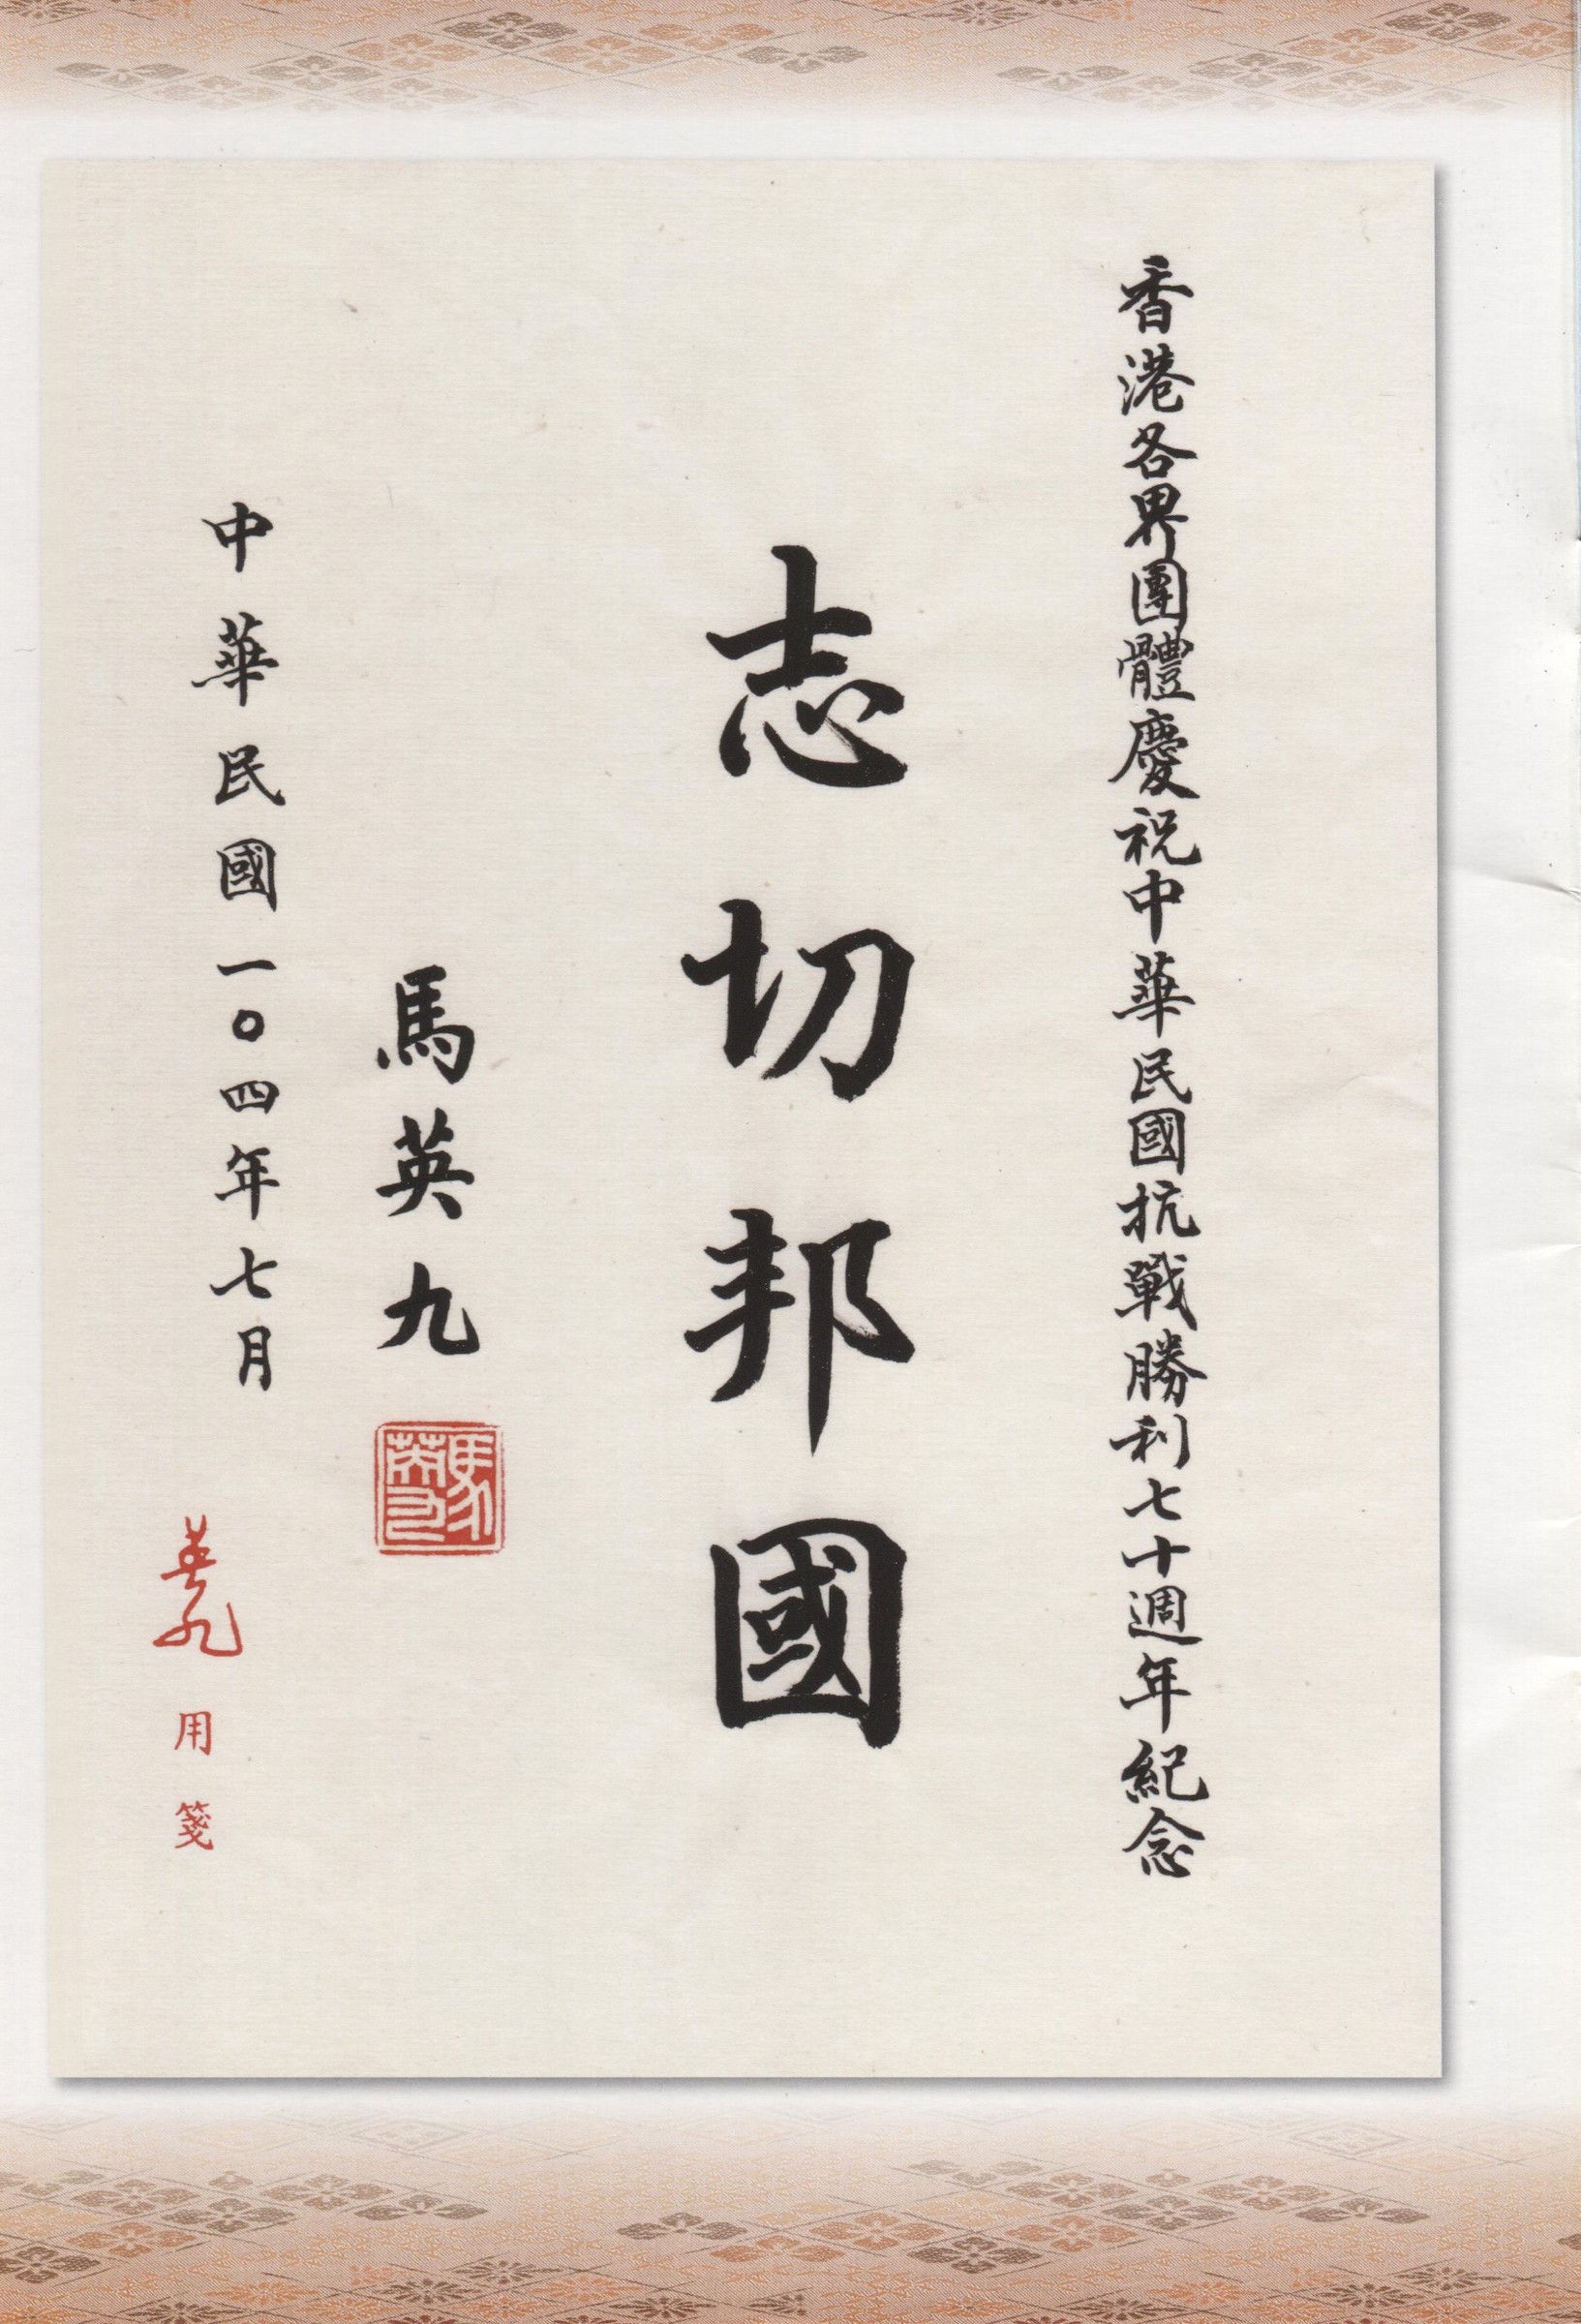 香港各界團體慶祝中華民國抗戰勝利七十週年紀念
志切邦國
馬英九
馬英九
中華民國一〇四年七月
英九 用箋